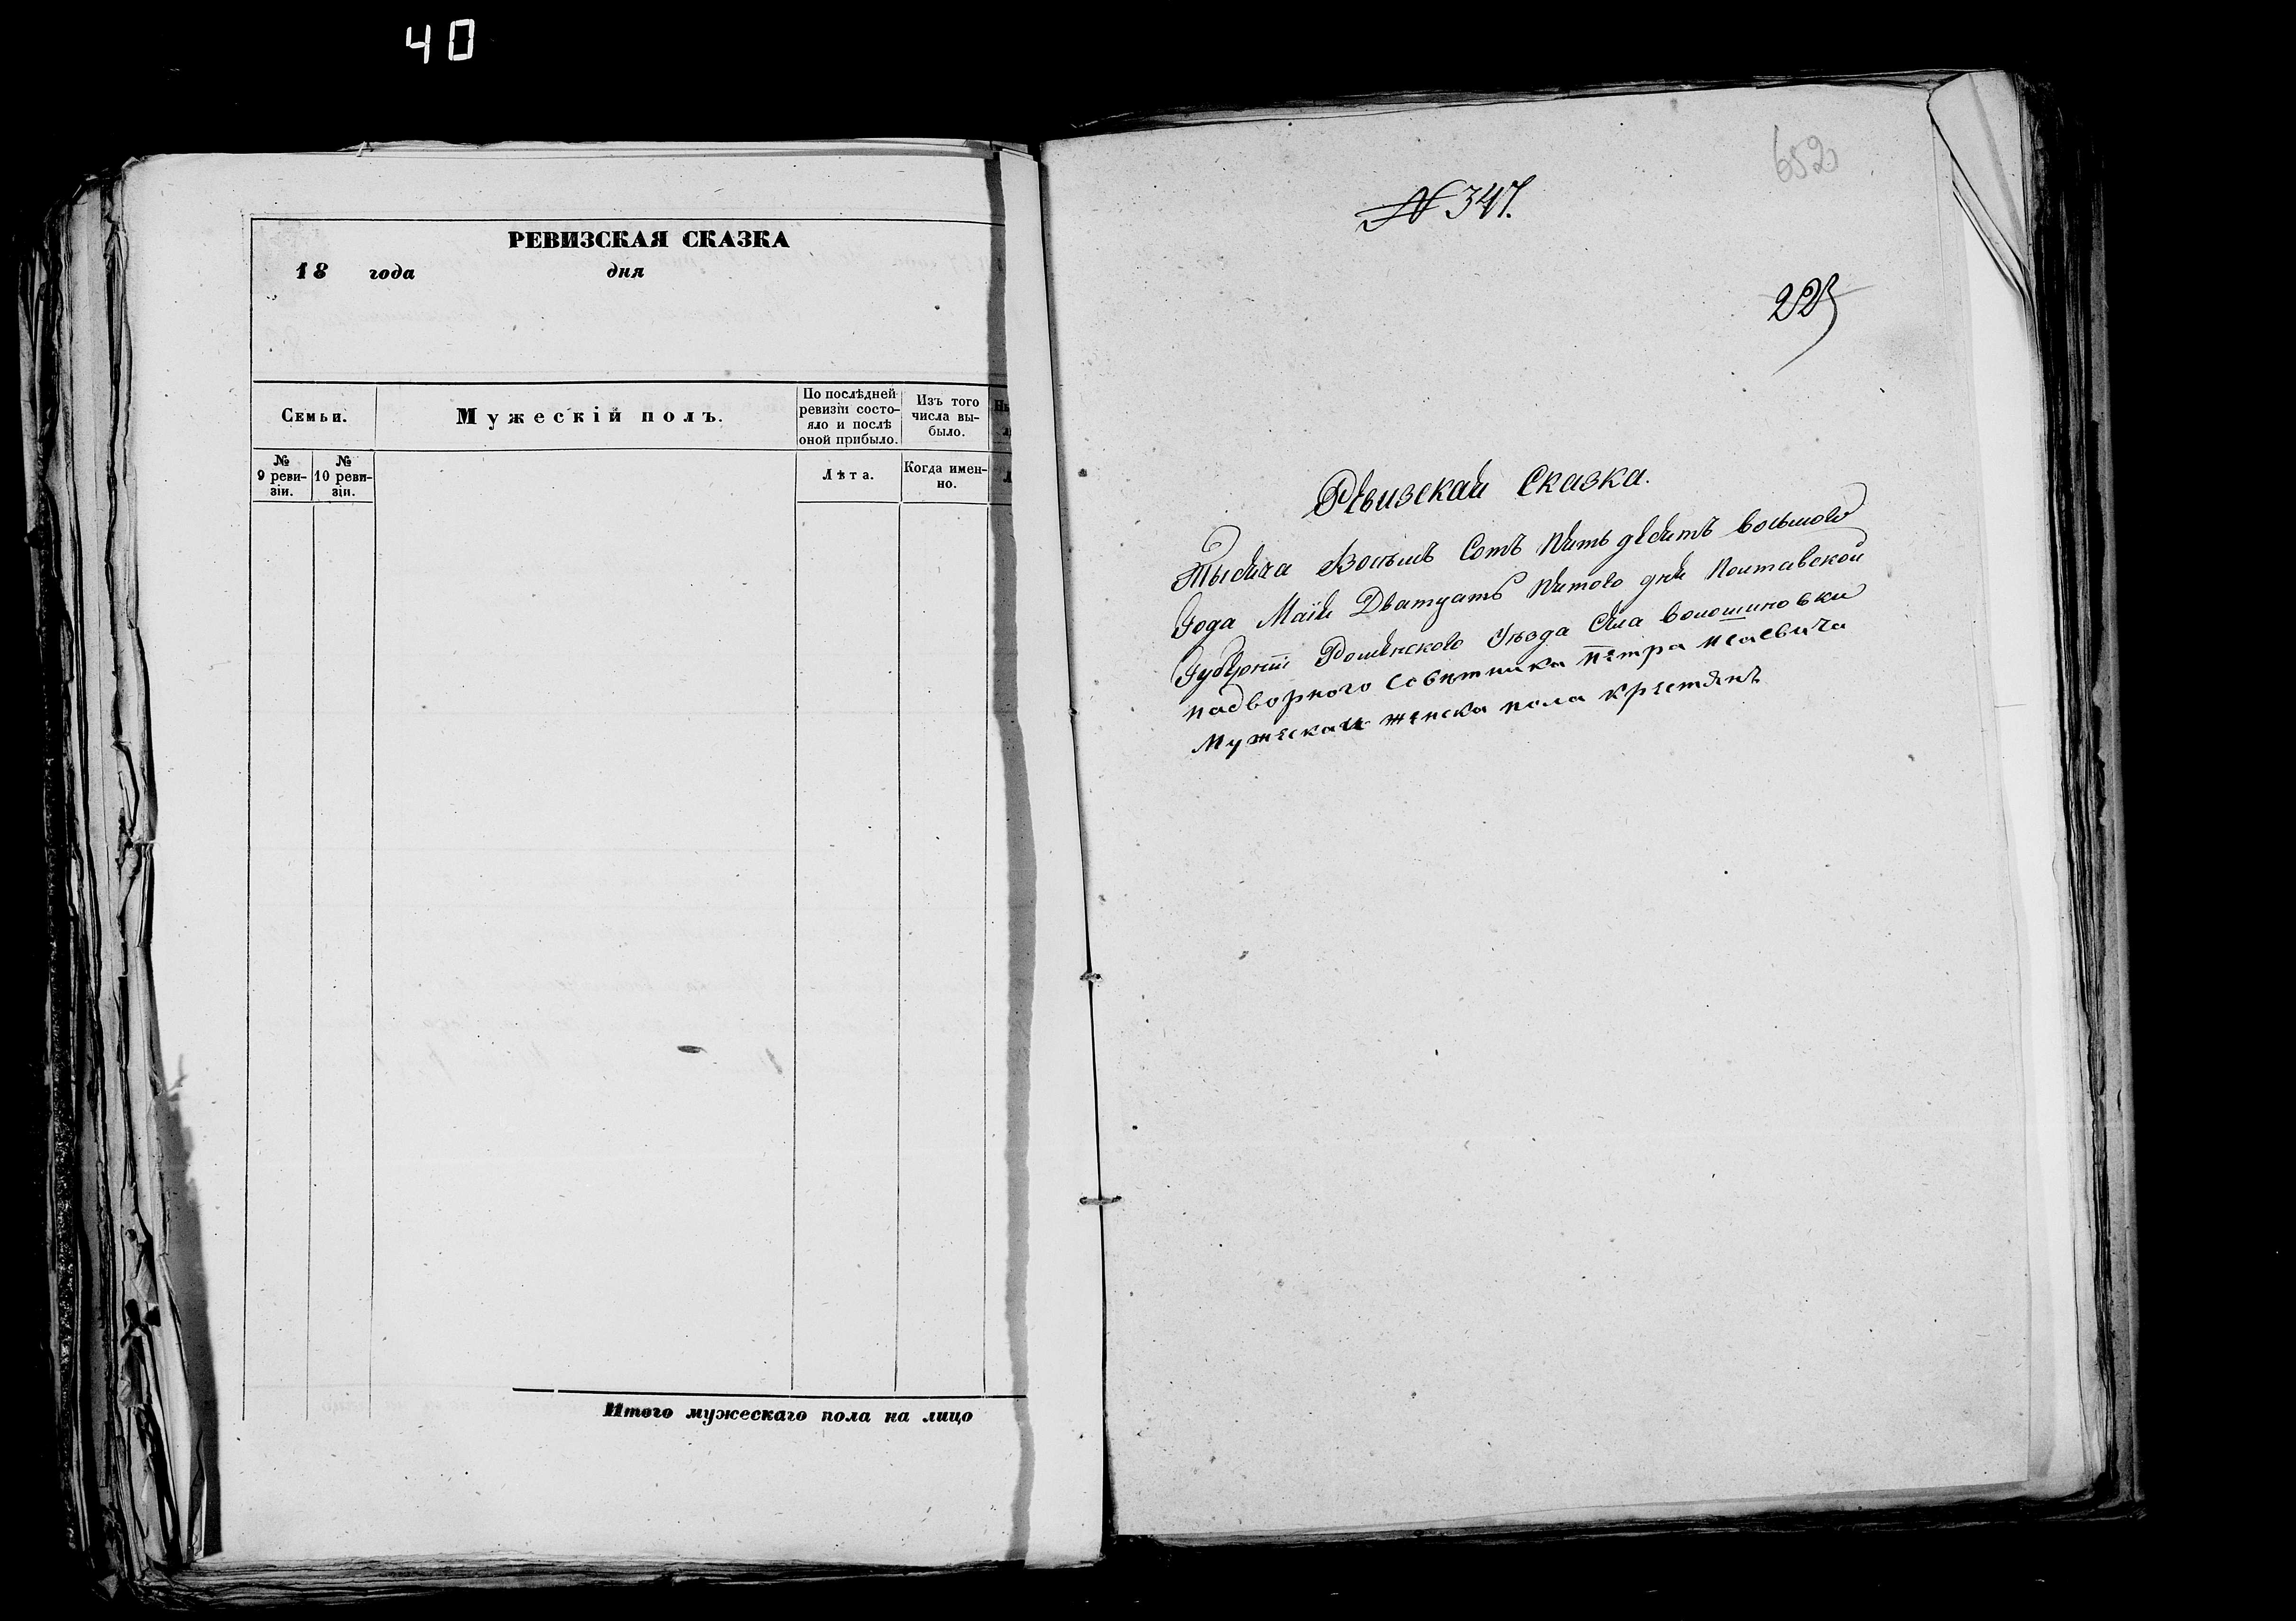 40
РЕВИЗСКАЯ СКАЗКА
18 года дня
Семьи.
Мужескій полъ.
По послѣдней
ревизіи состо-
яло и послѣ
оной прибыло.
Изъ того
числа вы-
было.
№
9 реви-
зіи.
№
10 реви-
зіи.
Лѣта.
Когда имен-
но.
Итого мужескаго пола на лицо
652
№ 347.
Ревизская Сказка.
Тысяча Восемъ Сотъ Пять десятъ восьмого
Года Маія Дватцать Пятого дня Полтавской
Губерніи Роменского Уѣзда Села волошиновки
надворного совѣтника петра исаевича
Мужеска и женска пола крестянъ